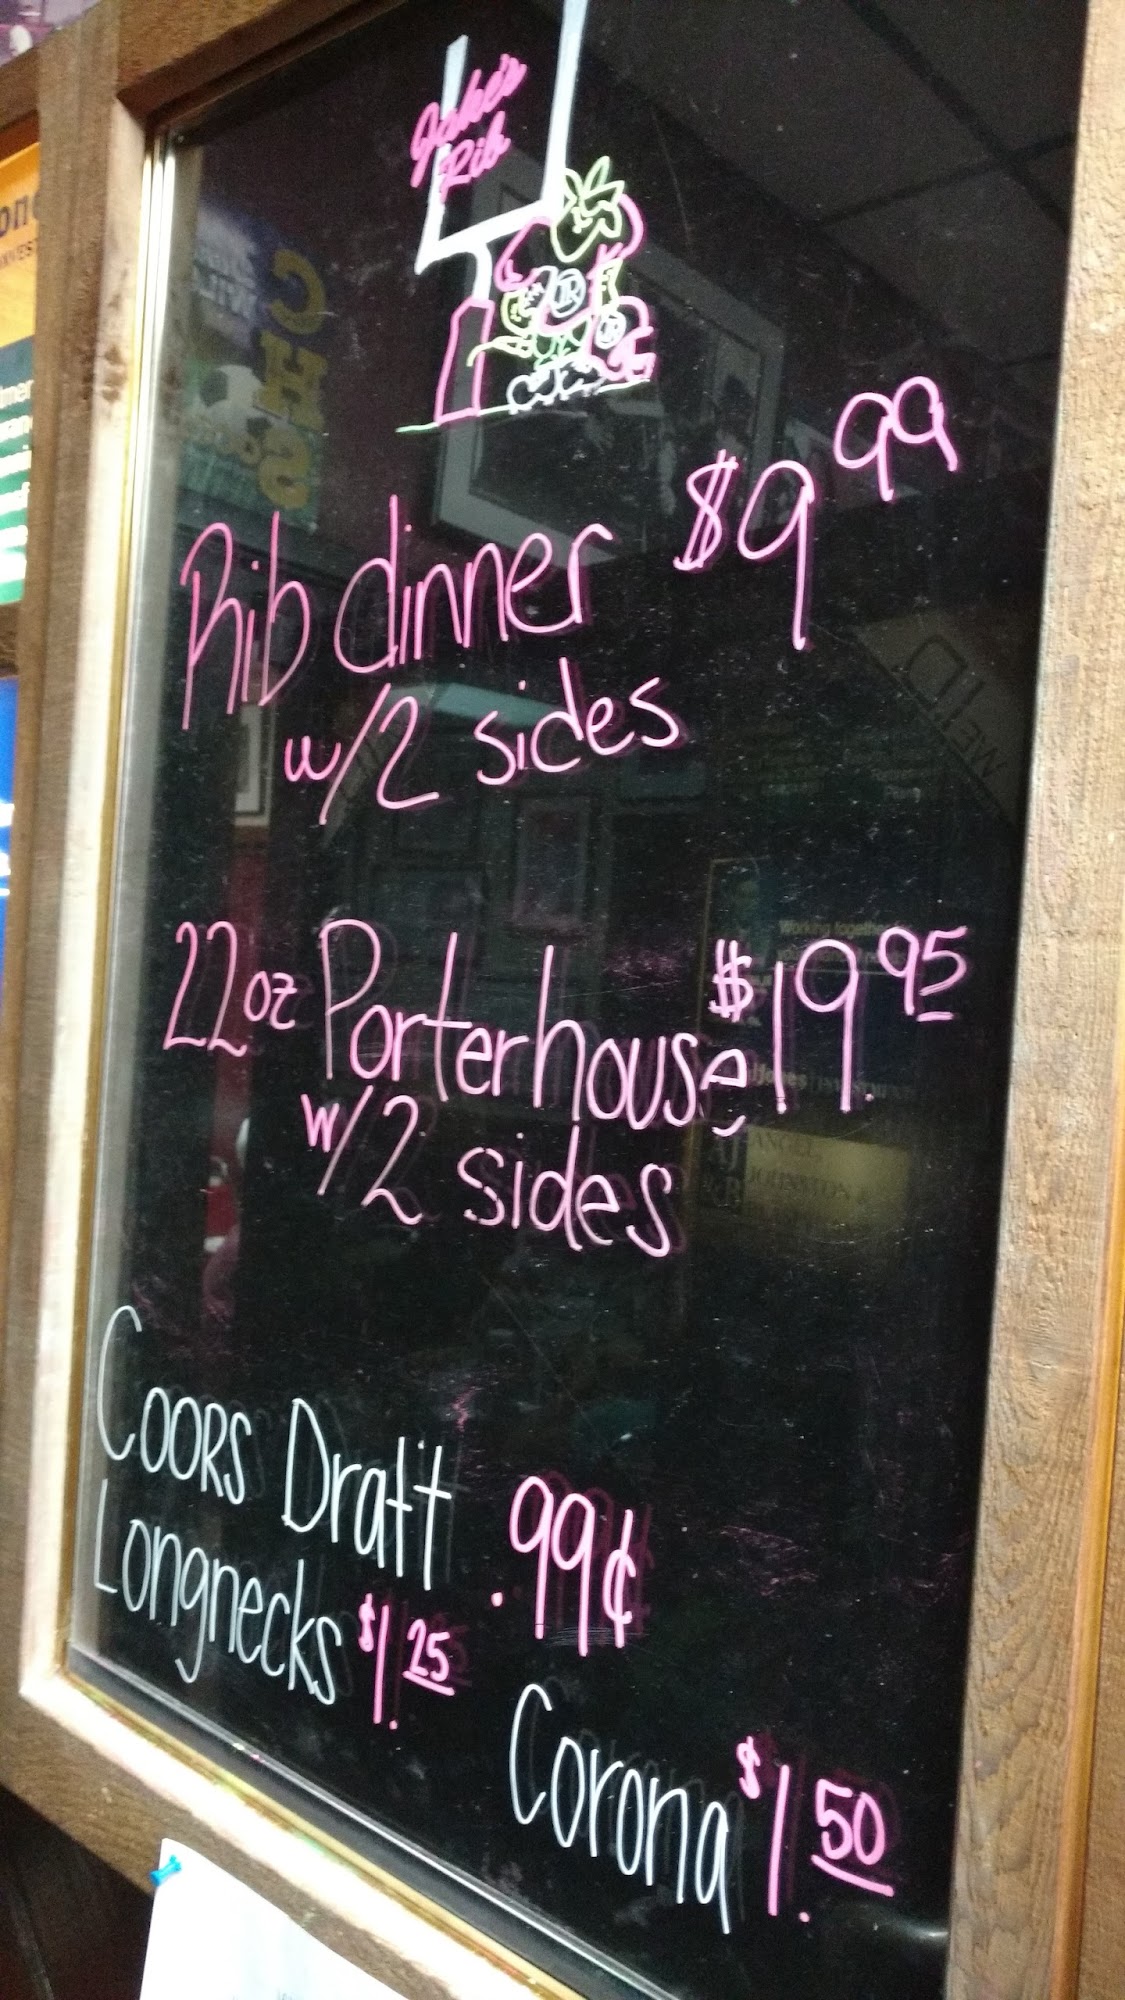 Jake's
Rib
JR
JR
CHS
Rib dinner $9.99
w/2 sides
22oz Porterhouse $19.95
w/2 sides
Coors Draft .99¢
Longnecks $1.25
Corona $1.50
Working together